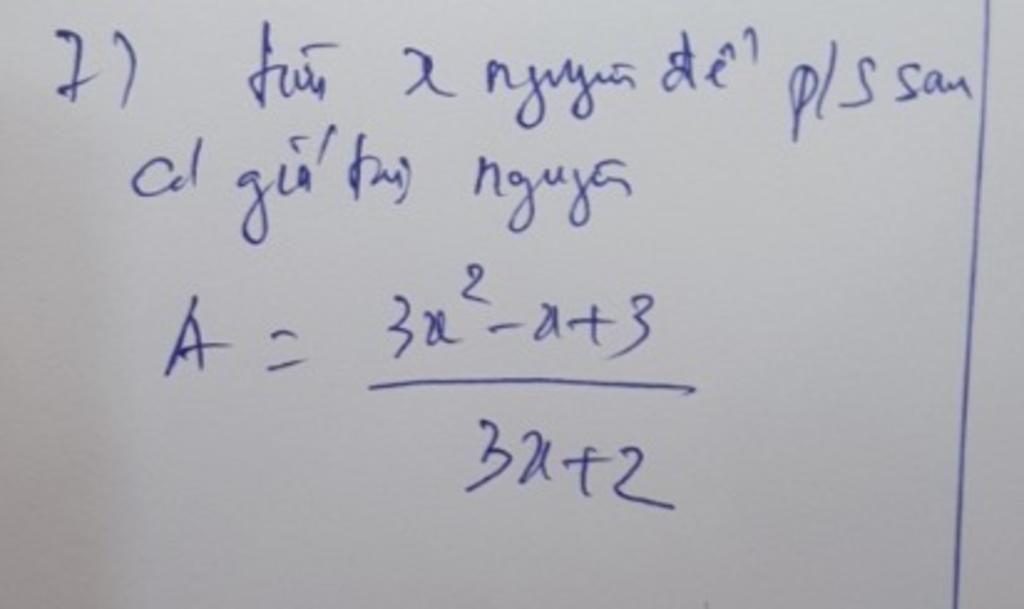 7) tìm x nguyên để p/s sau
có giá trị nguyên
A = \frac{3x^2 - x + 3}{3x + 2}